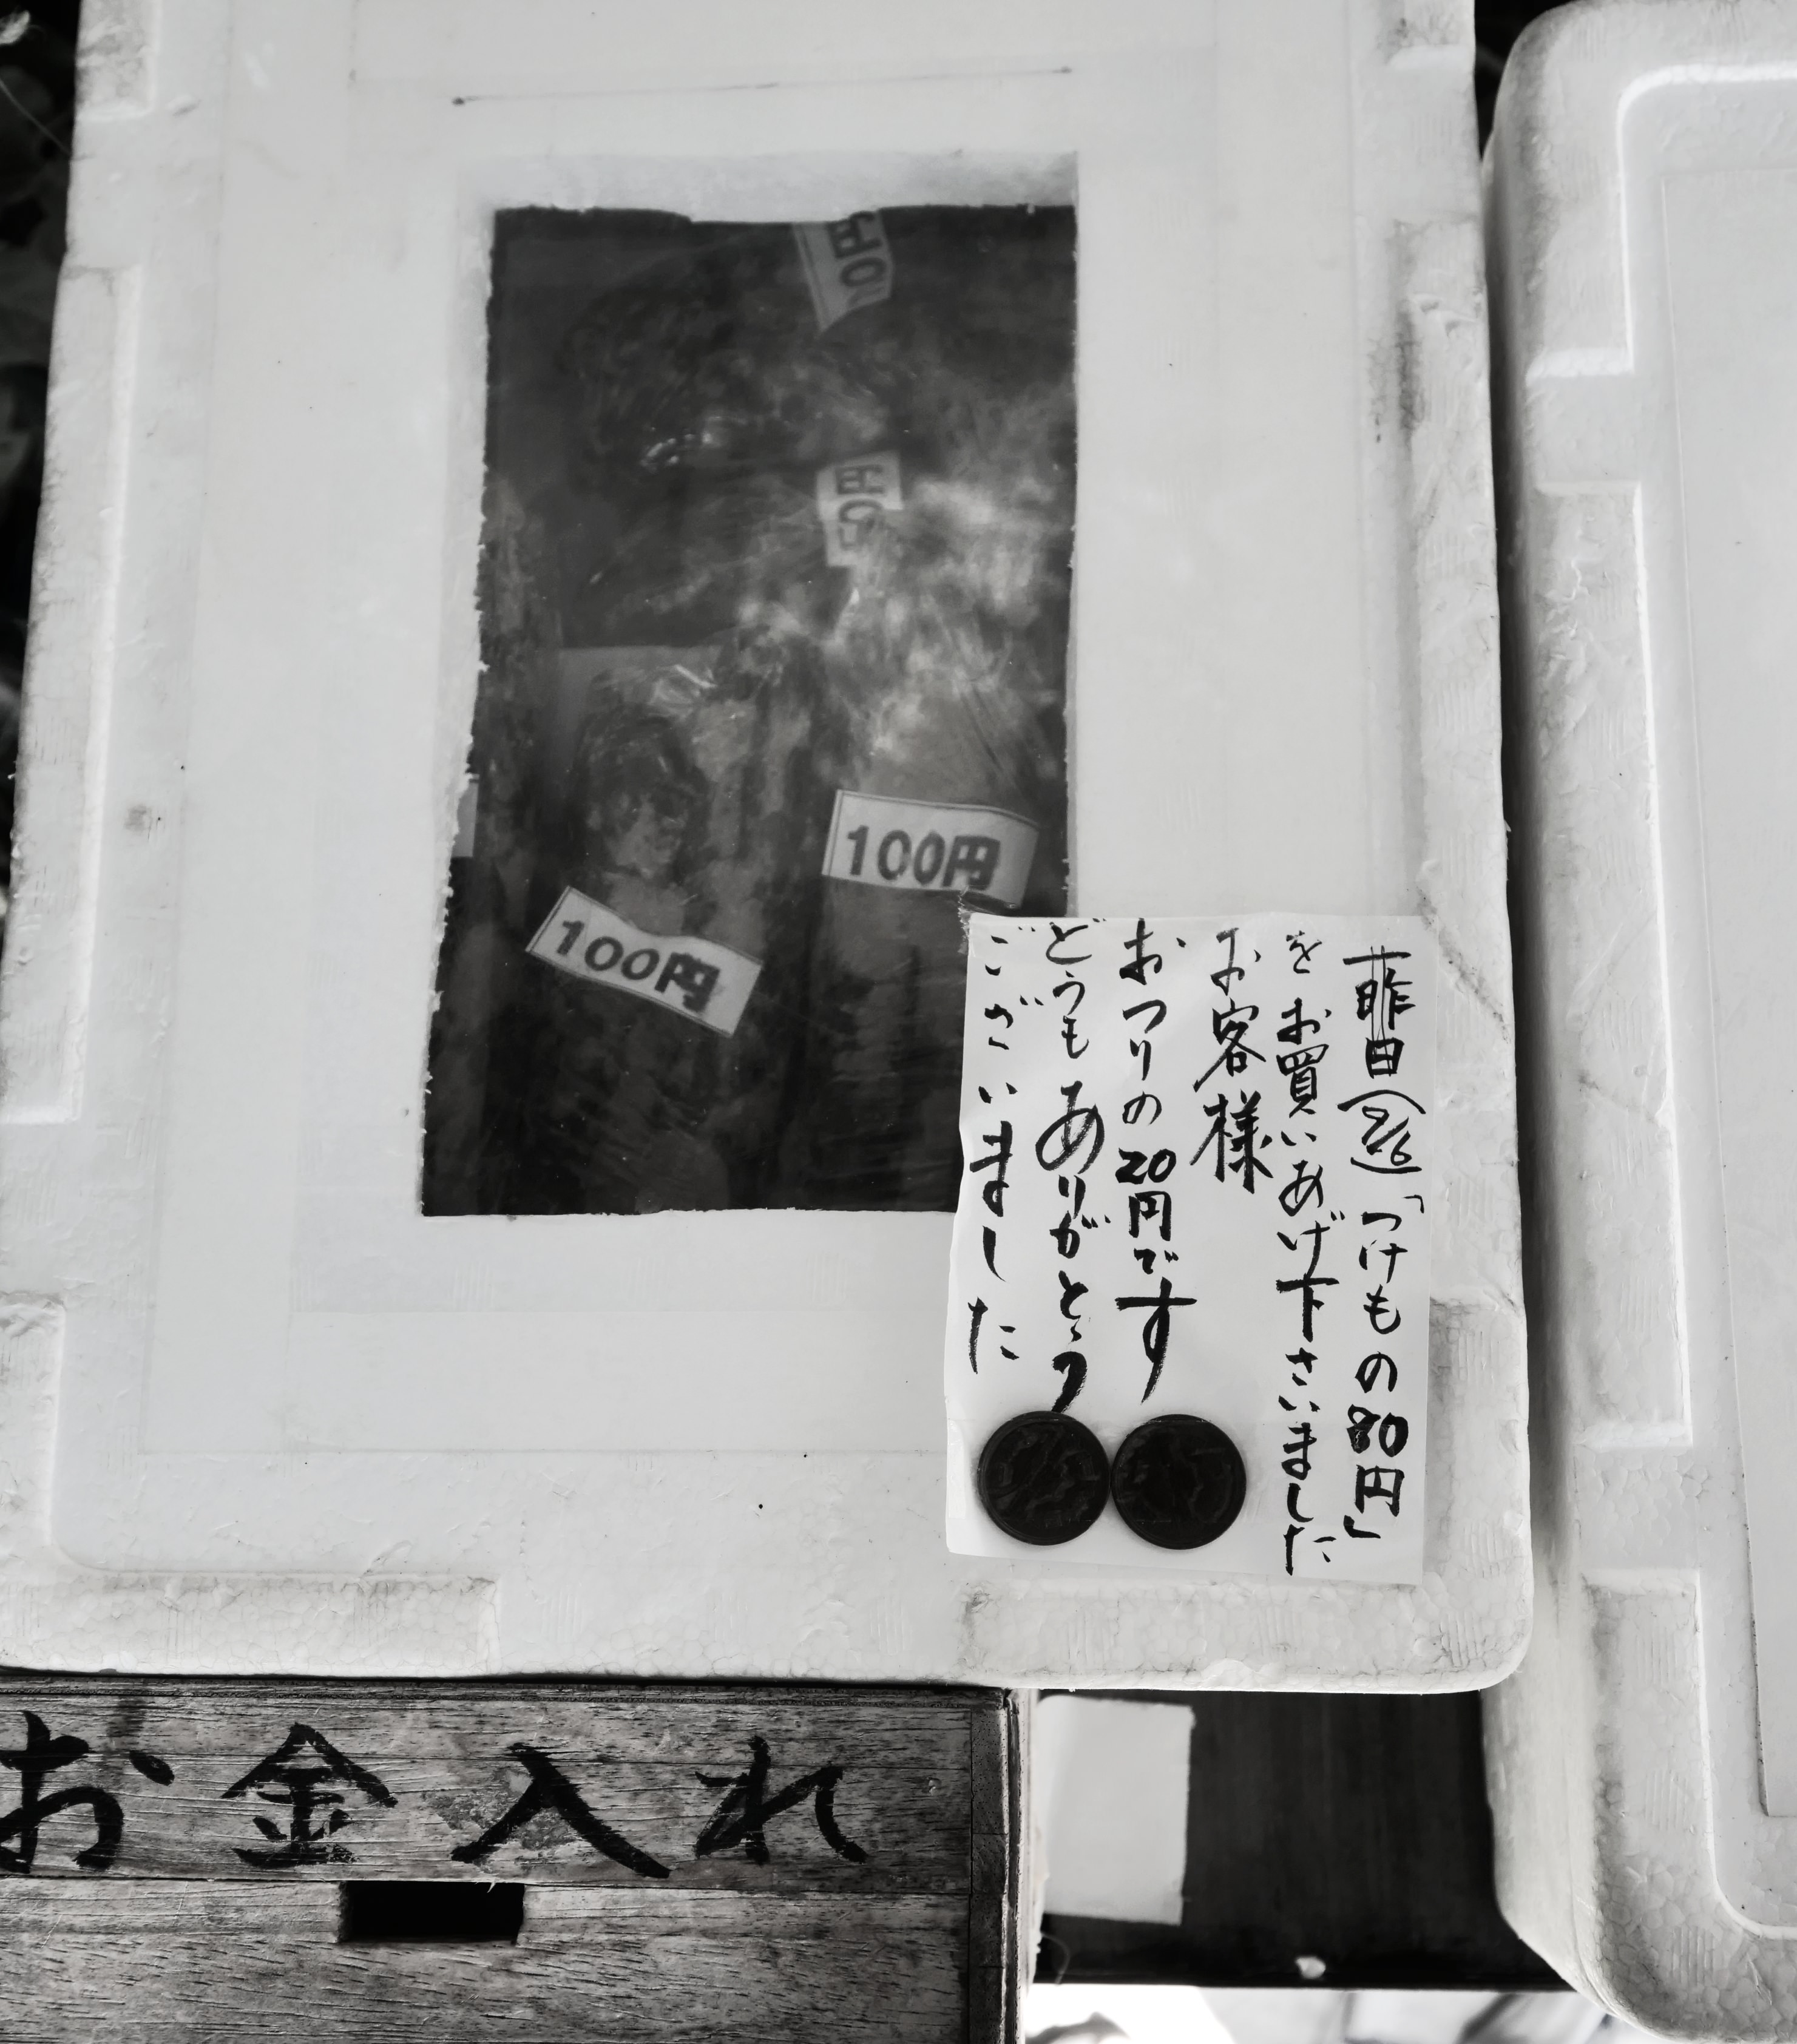 100円
100円
昨日(2/6)「つけもの80円」
をお買いあげ下さいました
お客様
おつりの20円です
どうもありがとう
ございました
お金入れ